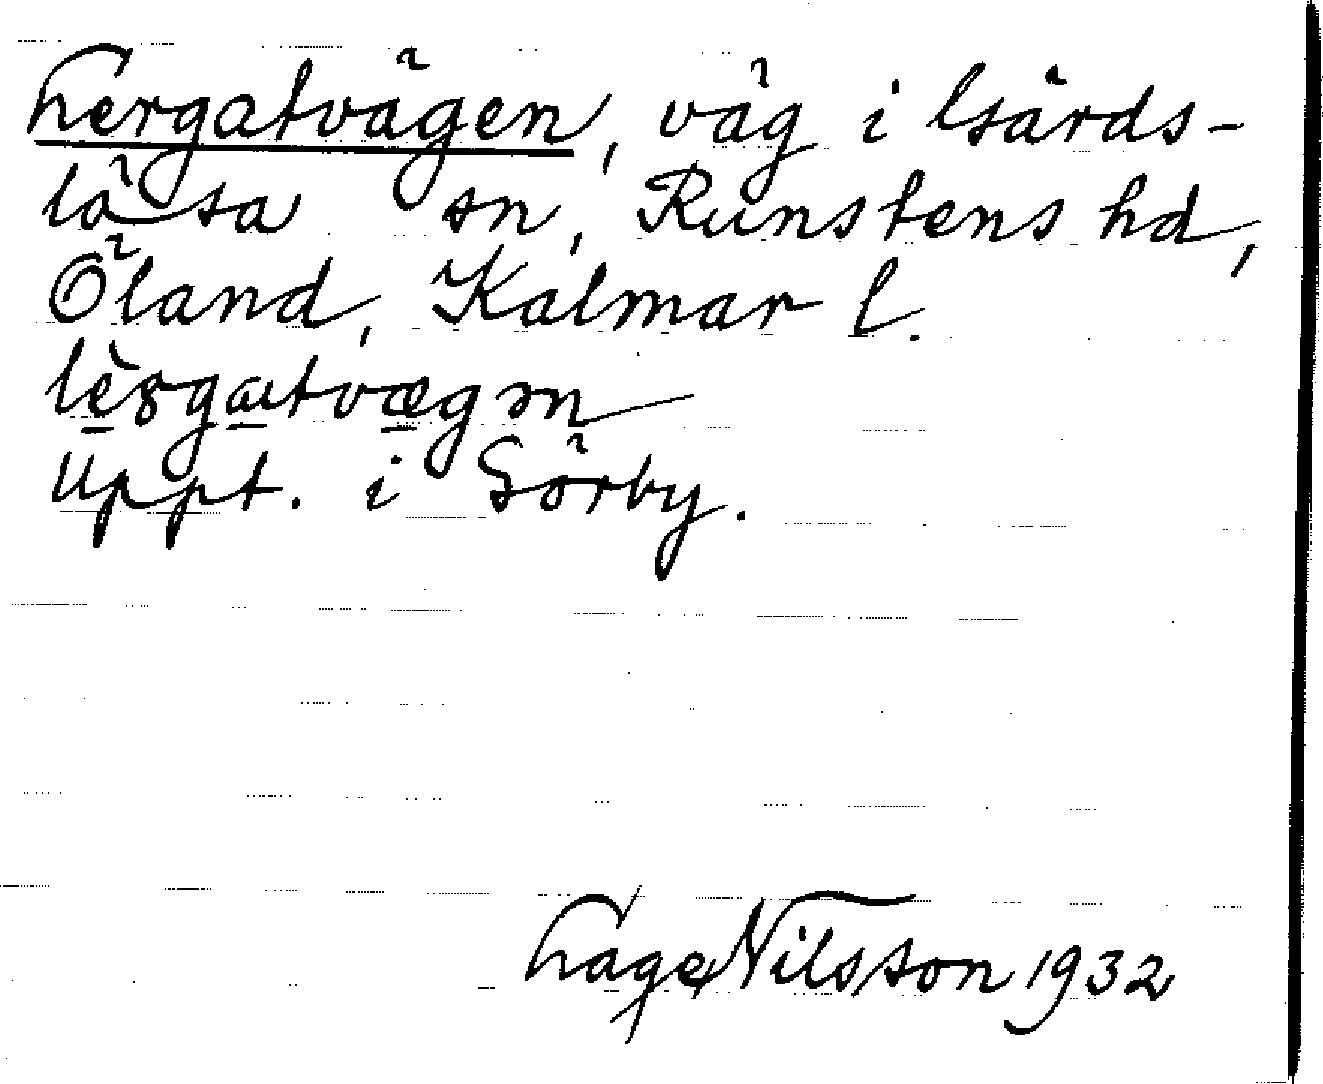 Lergatvägen, väg i Gärds-
lösa sn, Runstens hd,
Öland, Kalmar l.
Uppt. i Sörby.
Åge Nilsson 1932